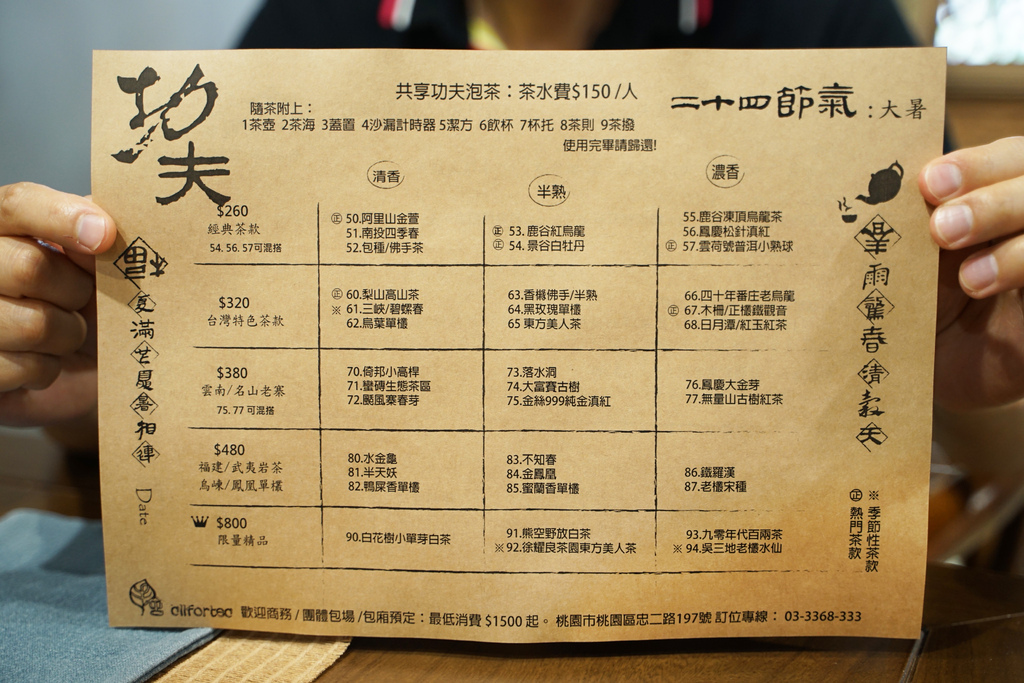 功夫
共享功夫泡茶：茶水費$150 /人
二十四節氣：大暑
隨茶附上：
1茶壺 2茶海 3蓋置 4沙漏計時器 5潔方 6飲杯 7杯托 8茶則 9茶撥
使用完畢請歸還!
清香
半熟
濃香
$260
經典茶款
54. 56. 57可混搭
㊣ 50.阿里山金萱
51.南投四季春
52.包種/佛手茶
㊣ 53. 鹿谷紅烏龍
㊣ 54. 景谷白牡丹
55.鹿谷凍頂烏龍茶
56.鳳慶松針滇紅
㊣ 57.雲荷號普洱小熟球
$320
台灣特色茶款
㊣ 60.梨山高山茶
※ 61.三峽/碧螺春
62.烏葉單欉
63.香櫞佛手/半熟
64.黑玫瑰單欉
65 東方美人茶
66.四十年番庄老烏龍
㊣ 67.木柵/正欉鐵觀音
68.日月潭/紅玉紅茶
$380
雲南/名山老寨
75. 77 可混搭
70.倚邦小高桿
71.蠻磚生態茶區
72.颳風寨春芽
73.落水洞
74.大富賽古樹
75.金絲999純金滇紅
76.鳳慶大金芽
77.無量山古樹紅茶
$480
福建/武夷岩茶
烏崠/鳳凰單欉
80.水金龜
81.半天妖
82.鴨屎香單欉
83.不知春
84.金鳳凰
85.蜜蘭香單欉
86.鐵羅漢
87.老欉宋種
$800
限量精品
90.白花樹小單芽白茶
91.熊空野放白茶
※ 92.徐耀良茶園東方美人茶
93.九零年代百兩茶
※ 94.吳三地老欉水仙
春雨驚春清穀天
夏滿芒夏暑相連
Date
※ 季節性茶款
㊣ 熱門茶款
歡迎商務 / 團體包場 /包廂預定：最低消費 $1500 起。 桃園市桃園區忠二路197號 訂位專線： 03-3368-333